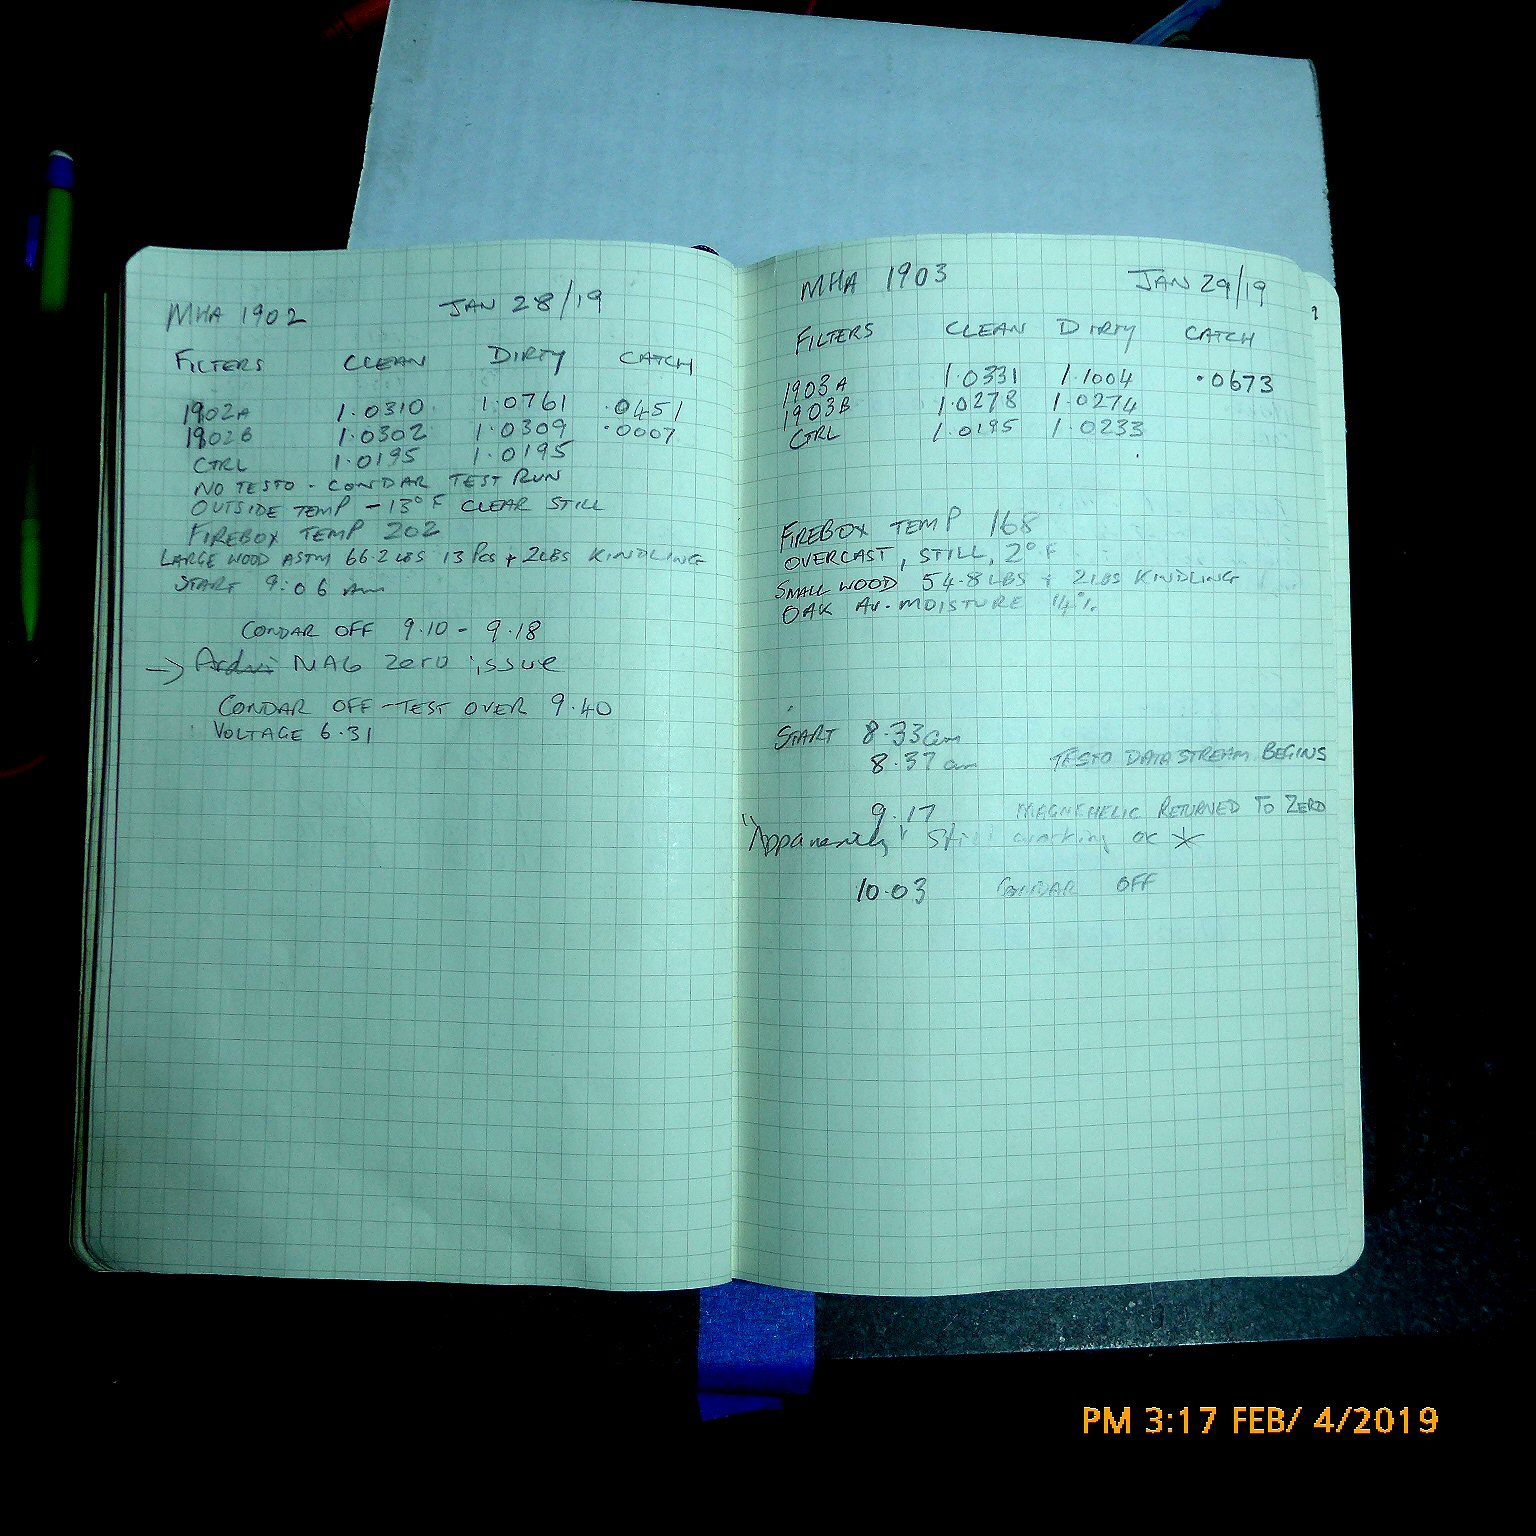 MHA 1902 JAN 28/19
FILTERS CLEAN DIRTY CATCH
1902A 1.0310 1.0761 .0451
1902B 1.0302 1.0309 .0007
CTRL 1.0195 1.0195
NO TESTO - CONDAR TEST RUN
OUTSIDE TEMP -13°F CLEAR STILL
FIREBOX TEMP 202
LARGE WOOD ASTM 66.2 LBS 13 PCS + 2LBS KINDLING
START 9:06 Am
CONDAR OFF 9.10 - 9.18
→ MAG zero issue
CONDAR OFF - TEST OVER 9.40
VOLTAGE 6.31
MHA 1903 JAN 29/19
FILTERS CLEAN DIRTY CATCH
1903A 1.0331 1.1004 .0673
1903B 1.0278 1.0274
CTRL 1.0195 1.0233
FIREBOX TEMP 168
OVERCAST, STILL, 2°F
SMALL WOOD 54.8 LBS + 2LBS KINDLING
OAK AV. MOISTURE 14%
START 8.33am
8.37am TESTO DATA STREAM BEGINS
9.17 MAGNEHELIC RETURNED TO ZERO
"Apparently" Still working OK *
10.03 CONDAR OFF
PM 3:17 FEB/ 4/2019